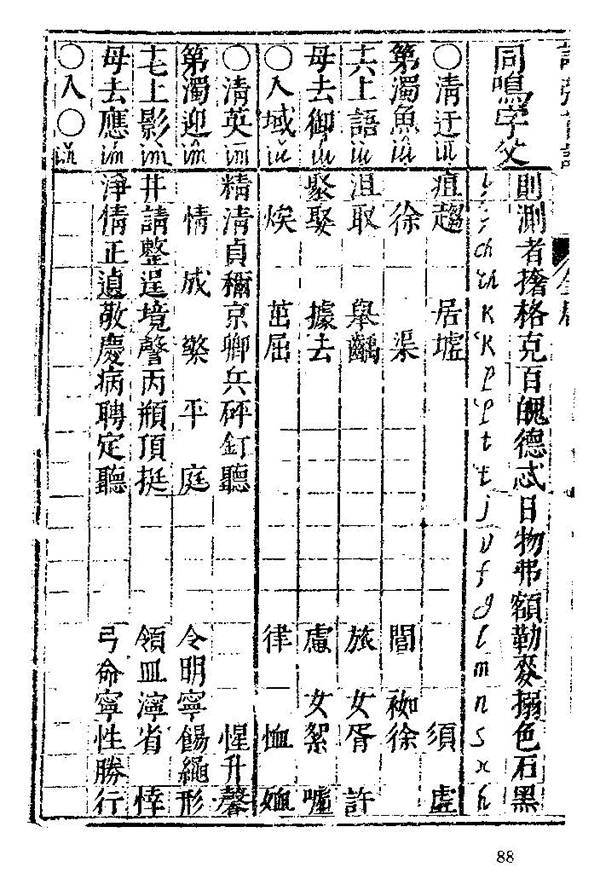 同鳴字父 則測者撦格克百魄德忒日物弗額勒麥搦色石黑
ch ‘ch K ‘K p ‘p t ‘t j v f g l m n s x h
○清迂 iū 疽趨 居墟 須 虛
第濁魚 iû 徐 渠 閭 袽徐
十六上語 iù 沮取 舉齲 旅 女胥 許
母去御 iú 聚娶 據去 慮 女絮 噓
○入域 iŭ 焌 茁屈 律 恤
○清英 īm 精清貞稱京卿兵砰釘聽 惺升馨
第濁迎 îm 情 成 檠 平 庭 令明寧餳繩形
十七上影 ìm 井請整逞境謦丙頩頂挺 領皿濘省 悻
母去應 ím 淨倩正遉敬慶病聘定聽 命寧性勝行
○入○ ĭm
88